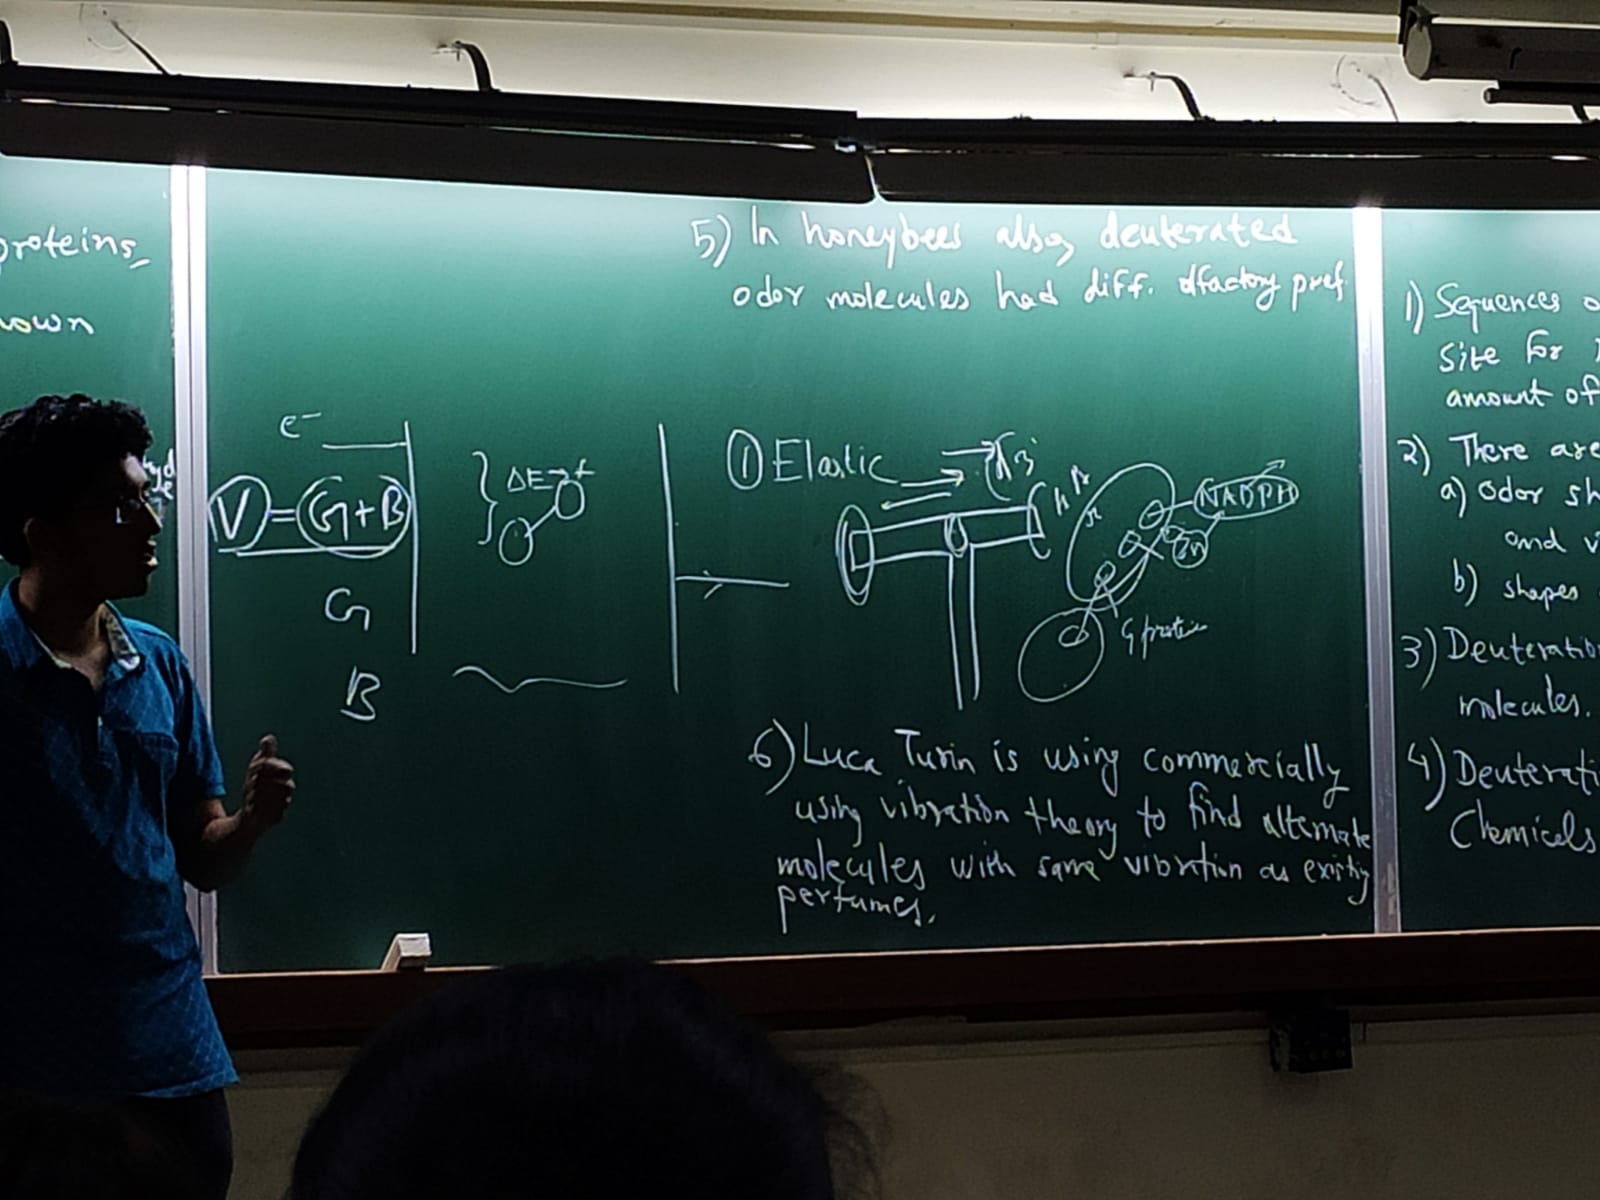 proteins,
nown
5) In honeybees also, deuterated
odor molecules had diff. olfactory pref.
e⁻
V = G+B
G
B
ΔE → f
① Elastic
NADPH
Zn
G protein
6) Luca Turin is using commercially
using vibration theory to find alternate
molecules with same vibration as existing
perfumes.
1) Sequences o
Site for
amount of
2) There are
a) Odor sh
and v
b) shapes
3) Deuteratio
molecules.
4) Deuterati
Chemicals